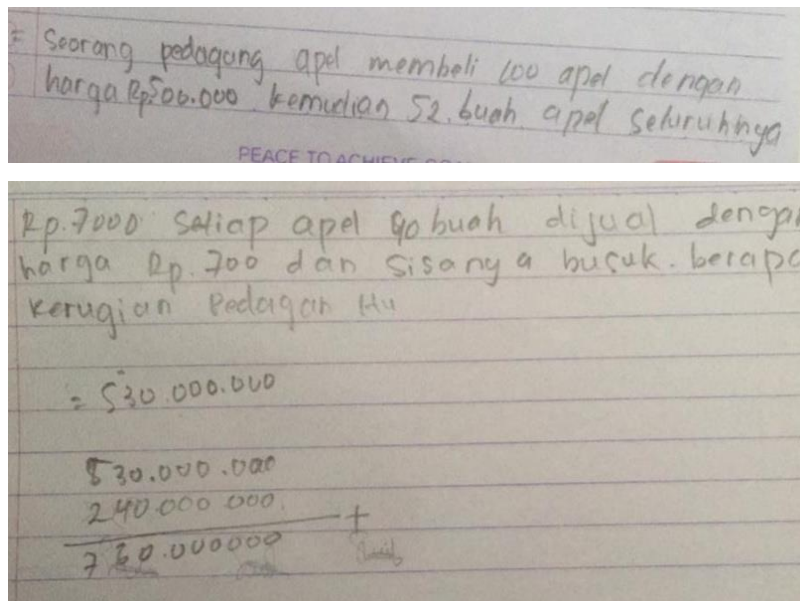 = Seorang pedagang apel membeli 100 apel dengan
harga Rp.500.000 kemudian 52 buah apel seluruhnya
PEACE TO ACHIEVE
Rp.7000 Setiap apel 90 buah dijual dengan
harga Rp.700 dan Sisanya busuk. berapa
kerugian Pedagan
= 530.000.000
530.000.000
240.000 000 +
760.000000